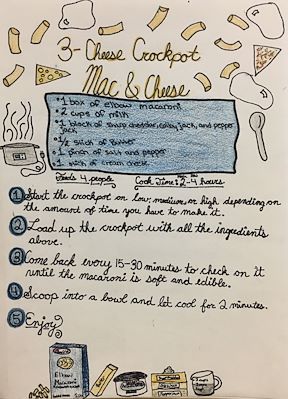 3-Cheese Crockpot
Mac & Cheese
• 1 box of elbow macaroni
• 2 cups of milk
• 1 block of sharp cheddar, colby jack, and pepper
jack
• 1/2 stick of butter
• 1 pinch of salt and pepper
• 1 stick of cream cheese
Feeds 4 people
Cook Time: 2-4 hours
1 Start the crockpot on low, medium, or high depending on
the amount of time you have to make it.
2 Load up the crockpot with all the ingredients
above.
3 Come back every 15-30 minutes to check on it
until the macaroni is soft and edible.
4 Scoop into a bowl and let cool for 2 minutes.
5 Enjoy
Elbow
Macaroni